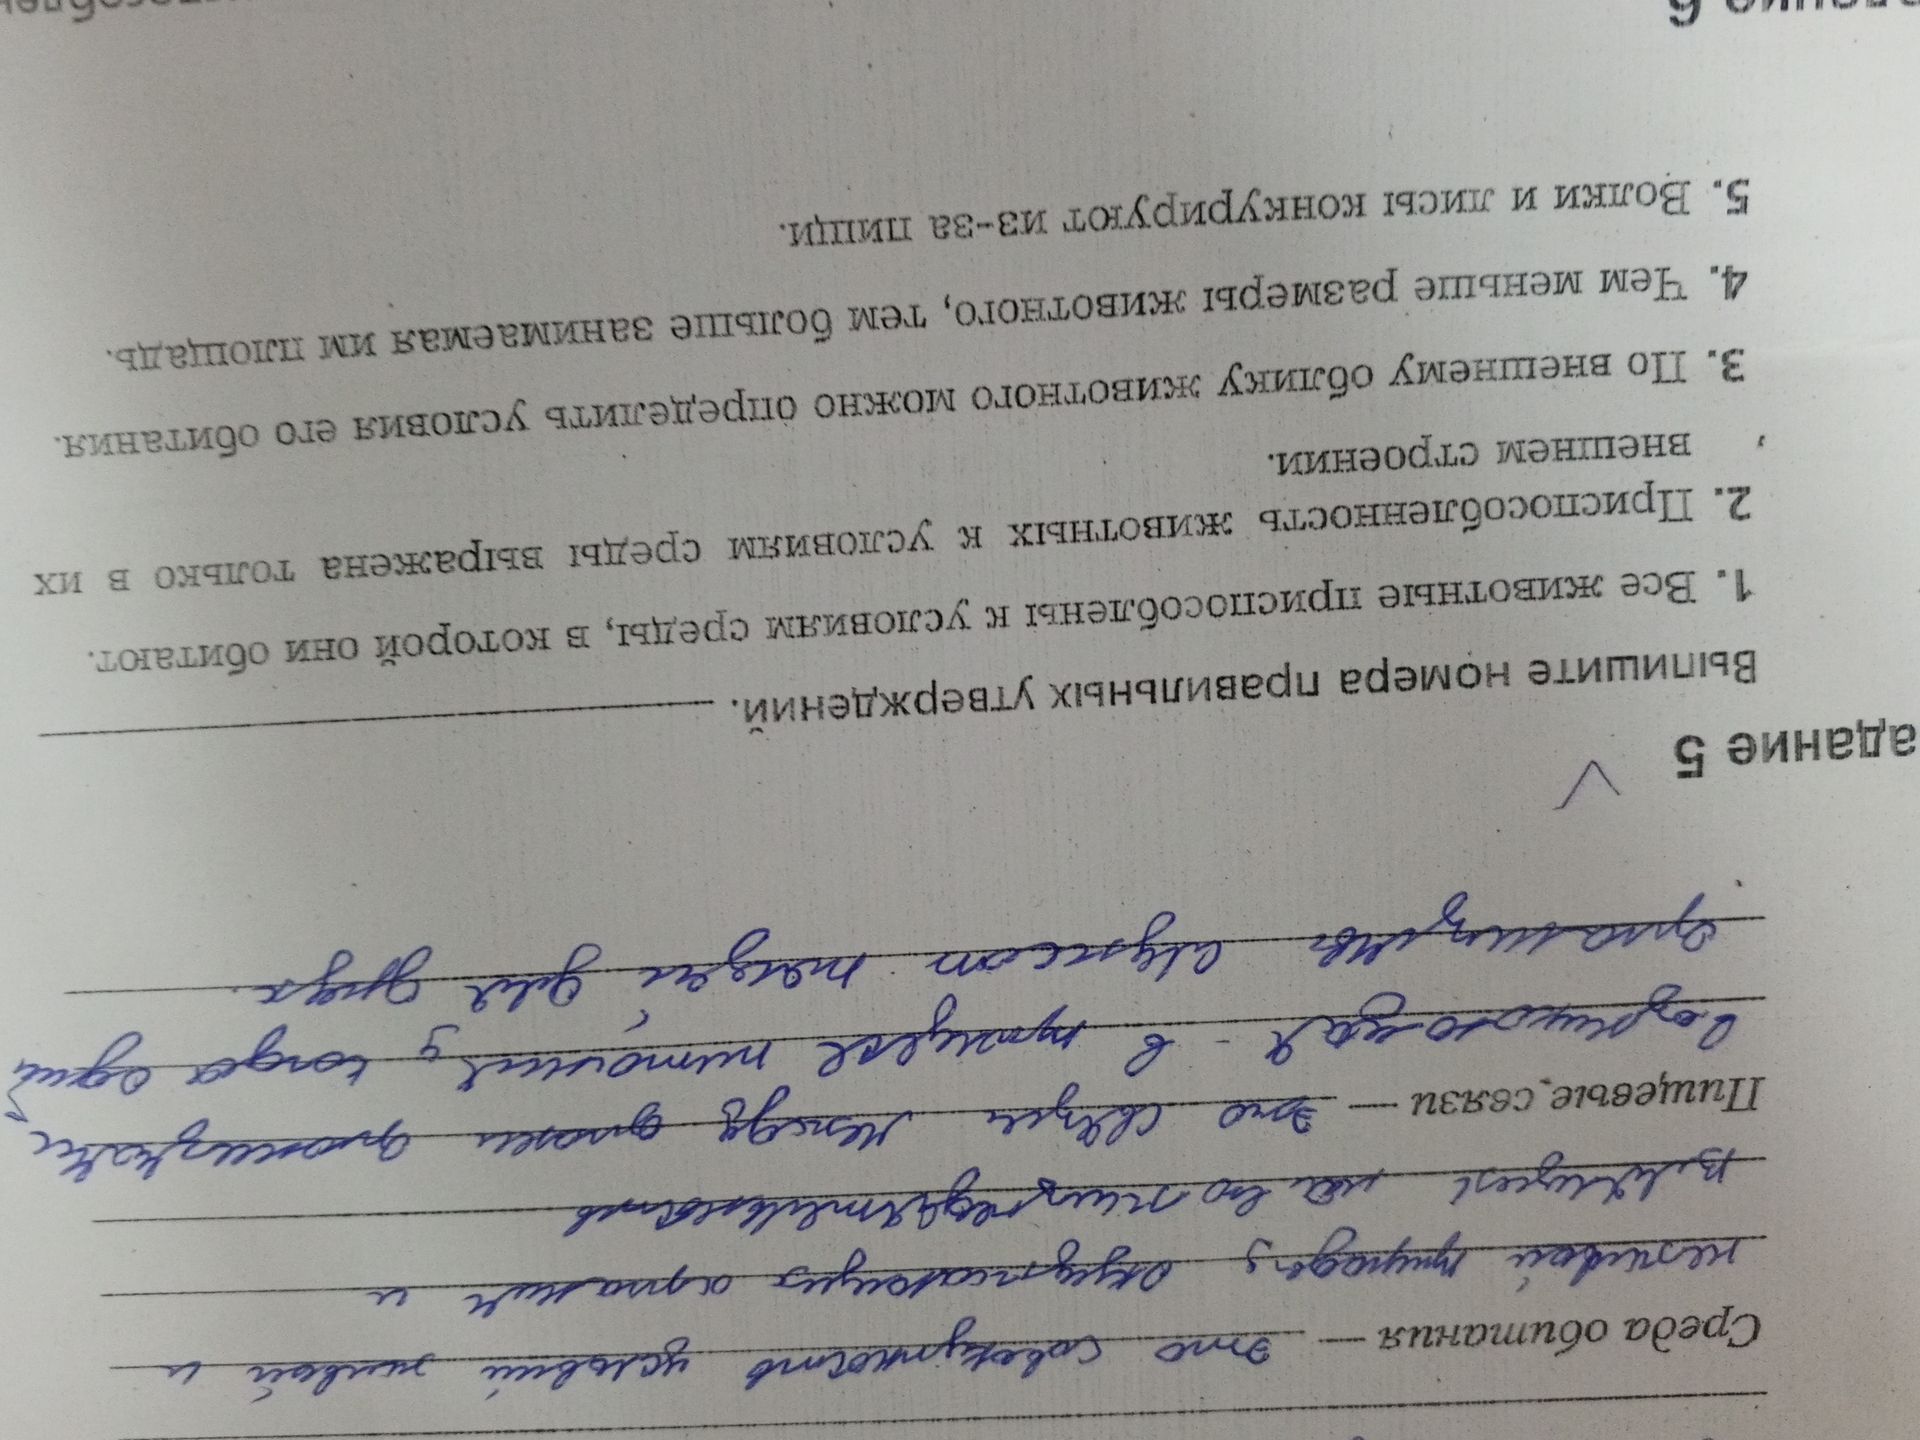 Среда обитания — это совокупность условий живой и
неживой природы, окружающих организм и
влияущее на его жизнедеятельность
Пищевые связи — это связи между организмами
в процессе питания, когда одни
организмы служат пищей для других.
адание 5
Выпишите номера правильных утверждений.
1. Все животные приспособлены к условиям среды, в которой они обитают.
2. Приспособленность животных к условиям среды выражена только в их
внешнем строении.
3. По внешнему облику животного можно определить условия его обитания.
4. Чем меньше размеры животного, тем больше занимаемая им площадь.
5. Волки и лисы конкурируют из-за пищи.
6